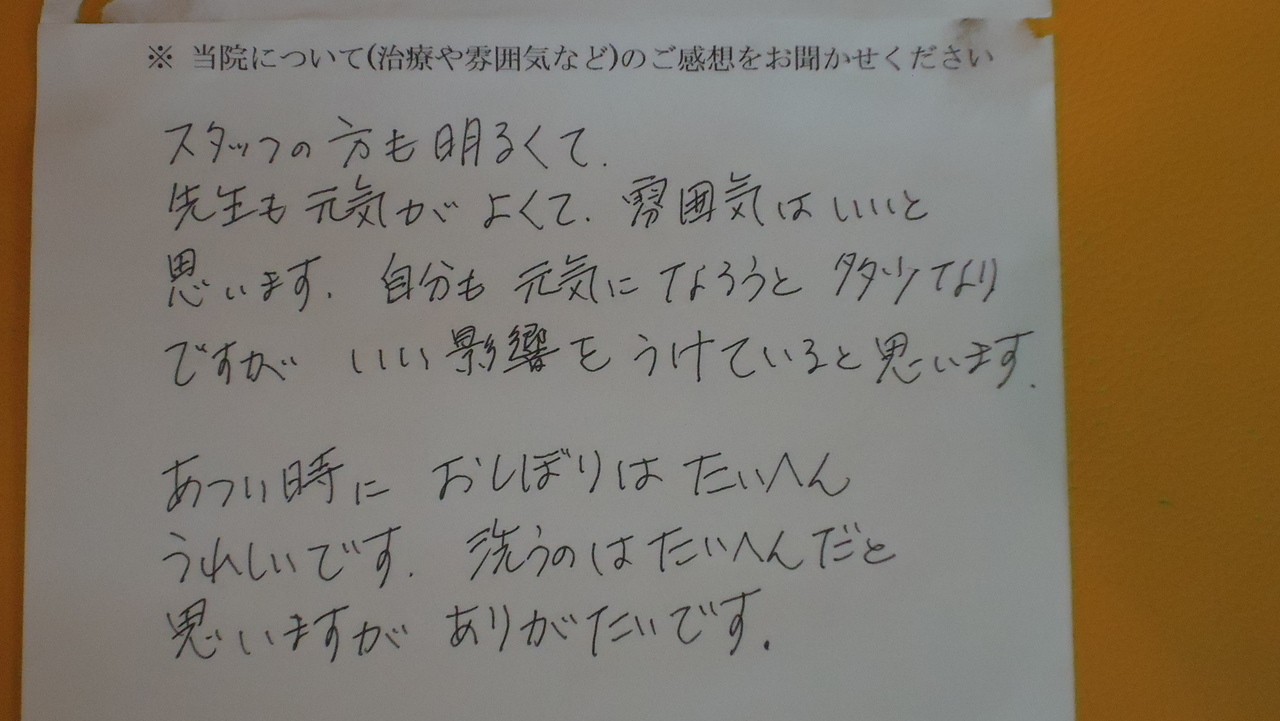 ※ 当院について(治療や雰囲気など)のご感想をお聞かせください
スタッフの方も明るくて.
先生も元気がよくて. 雰囲気はいいと
思います. 自分も元気になろうと 多少なり
ですが いい影響をうけていると思います.
あつい時に おしぼりは たいへん
うれしいです. 洗うのはたいへんだと
思いますが ありがたいです.